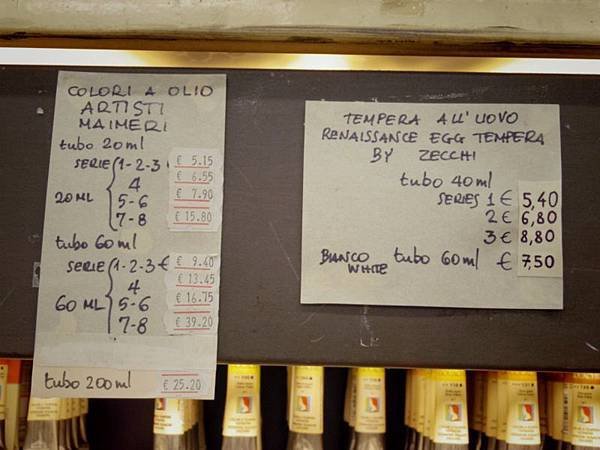 COLORI A OLIO
ARTISTI
MAIMERI
tubo 20 ml
SERIE 1-2-3 € 5.15
4 € 6.55
20 ML 5-6 € 7.90
7-8 € 15.80
tubo 60 ml
SERIE 1-2-3 € € 9.40
4 € 13.45
60 ML 5-6 € 16.75
7-8 € 39.20
tubo 200 ml € 25.20
TEMPERA ALL'UOVO
RENAISSANCE EGG TEMPERA
BY ZECCHI
tubo 40 ml
SERIES 1 € 5,40
2 € 6,80
3 € 8,80
BIANCO tubo 60 ml € 7,50
WHITE